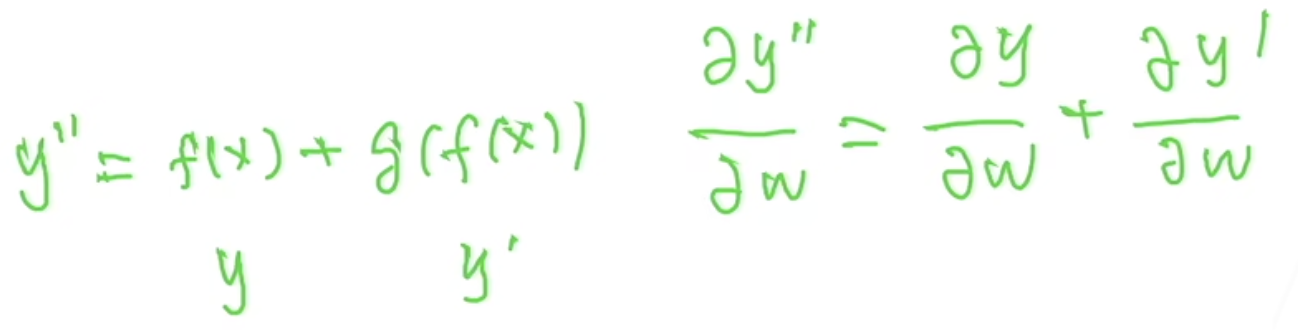 y'' = f(x) + g(f(x))
y y'
∂y''/∂w = ∂y/∂w + ∂y'/∂w